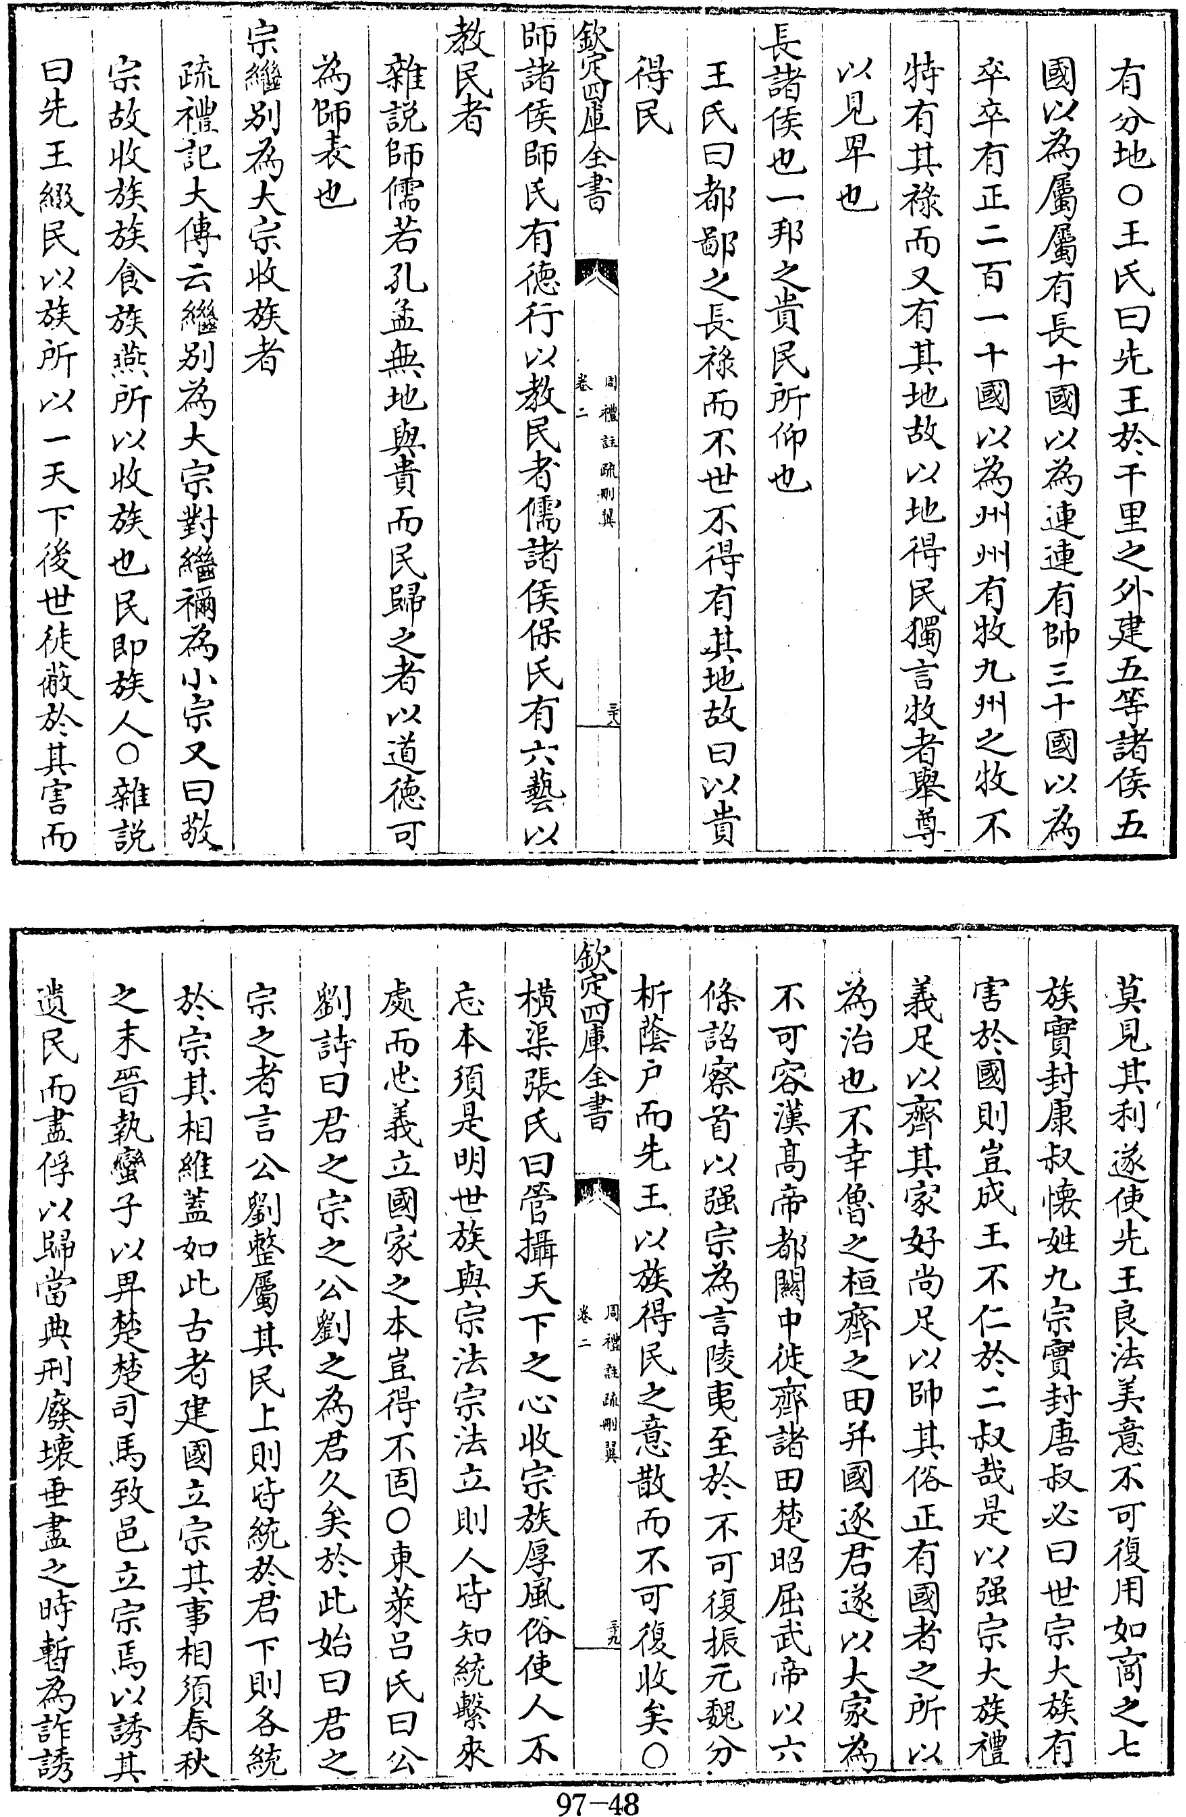 有分地○王氏曰先王於千里之外建五等諸侯五
國以為屬屬有長十國以為連連有帥三十國以為
卒卒有正二百一十國以為州州有牧九州之牧不
特有其祿而又有其地故以地得民獨言牧者舉尊
以見卑也
長諸侯也一邦之貴民所仰也
王氏曰都鄙之長祿而不世不得有其地故曰以貴
得民
欽定四庫全書
周禮註疏刪翼
卷二
三十八
師諸侯師氏有德行以教民者儒諸侯保氏有六藝以
教民者
雜説師儒若孔孟無地與貴而民歸之者以道德可
為師表也
宗繼别為大宗收族者
疏禮記大傳云繼别為大宗對繼禰為小宗又曰敬
宗故收族族食族燕所以收族也民即族人○雜説
曰先王綴民以族所以一天下後世徒蔽於其害而
莫見其利遂使先王良法美意不可復用如商之七
族實封康叔懐姓九宗實封唐叔必曰世宗大族有
害於國則豈成王不仁於二叔哉是以强宗大族禮
義足以齊其家好尚足以帥其俗正有國者之所以
為治也不幸魯之桓齊之田并國逐君遂以大家為
不可容漢髙帝都闗中徙齊諸田楚昭屈武帝以六
條詔察首以强宗為言陵夷至於不可復振元魏分
析蔭户而先王以族得民之意散而不可復收矣○
欽定四庫全書
周禮註疏刪翼
卷二
三十九
横渠張氏曰管攝天下之心收宗族厚風俗使人不
忘本須是明世族與宗法宗法立則人皆知統繫來
處而忠義立國家之本豈得不固○東萊吕氏曰公
劉詩曰君之宗之公劉之為君久矣於此始曰君之
宗之者言公劉整屬其民上則皆統於君下則各統
於宗其相維蓋如此古者建國立宗其事相須春秋
之末晉執蠻子以畀楚楚司馬致邑立宗焉以誘其
遺民而盡俘以歸當典刑廢壊垂盡之時暫為詐誘
97-48